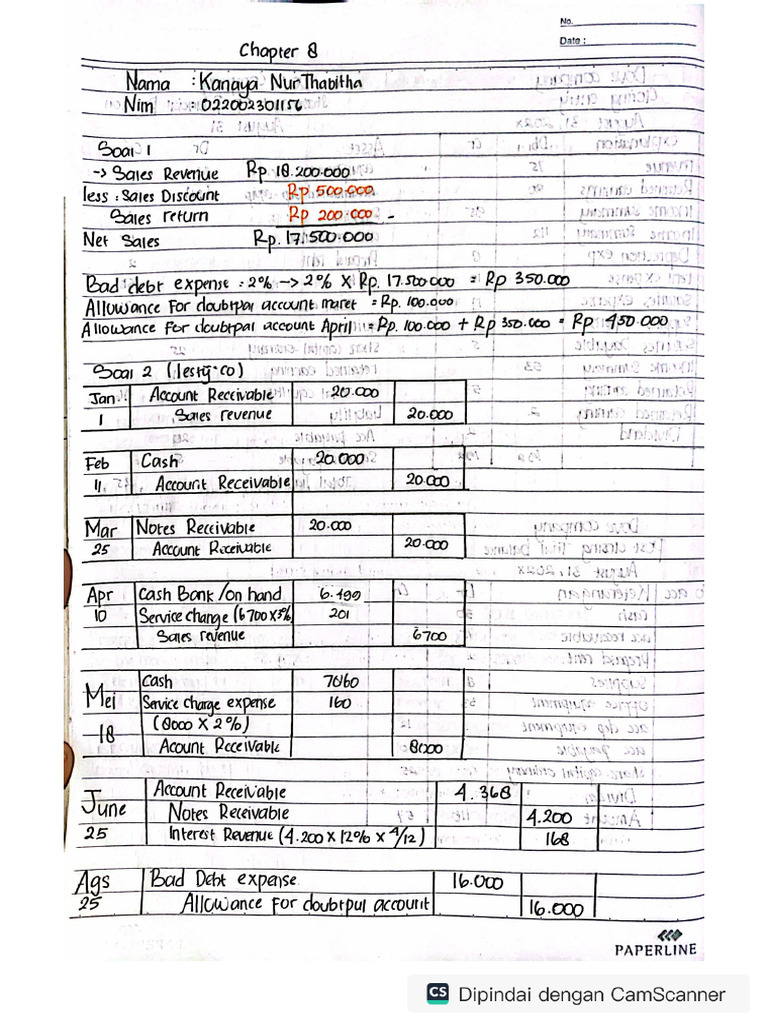 No.
Date :
Chapter 8
Nama : Kanaya Nur Thabitha
Nim : 022002301156
Soal 1
-> Sales Revenue Rp 18.200.000
less : Sales Discount Rp 500.000
Sales return Rp 200.000 -
Net Sales Rp. 17.500.000
Bad debt expense : 2% -> 2% X Rp. 17.500.000 = Rp 350.000
Allowance For doubtpul account maret = Rp. 100.000
Allowance for doubtpul account April = Rp. 100.000 + Rp 350.000 = Rp 450.000
Soal 2 (lesty.co)
Jan Account Receivable 20.000
1 Sales revenue 20.000
Feb Cash 20.000
11, Account Receivable 20.000
Mar Notes Receivable 20.000
25 Account Receivable 20.000
Apr Cash Bank / on hand 6.499
10 Service change (6700 X 3% 201
Sales revenue 6700
Cash
Mei Service charge expense 160
(8000 X 2%)
18 Acount Receivable 8000
Account Receivable 4.368
June Notes Receivable 4.200
25 Interest Revenue (4.200 X 12% X 4/12) 168
Ags Bad Debt expense 16.000
25 Allowance For doubtpul account 16.000
PAPERLINE
CS Dipindai dengan CamScanner